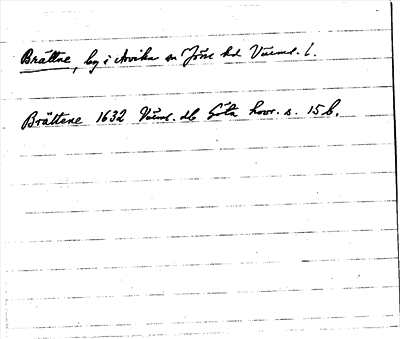 Brättne, by i Arvika sn Jösse hd Värml. l.
Brättene 1632 Värml. db Göta hovr. s. 15 b.